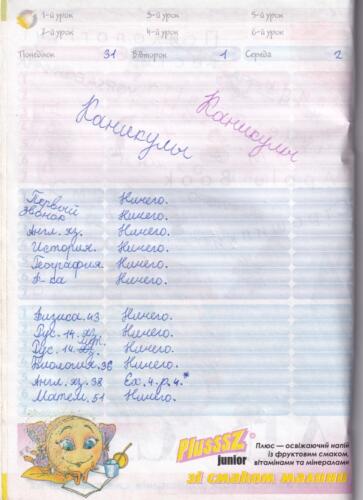 1-й урок 3-й урок 5-й урок
2-й урок 4-й урок 6-й урок
Понеділок 31 Вівторок 1 Середа 2
Каникулы Каникулы
Первый звонок Ничего.
Англ. яз. Ничего.
История. Ничего.
География. Ничего.
Ф-ра Ничего.
Физика. 43 Ничего.
Рус. 14. яз. Ничего.
Рус. 14. лит. Ничего.
Биология. 36 Ничего.
Англ. яз. 38 Ex. 4. p. 4.*
Матем. 51 Ничего.
PlusssZ junior
Плюс — освіжаючий напій
із фруктовим смаком,
вітамінами та мінералами
зі смаком малини